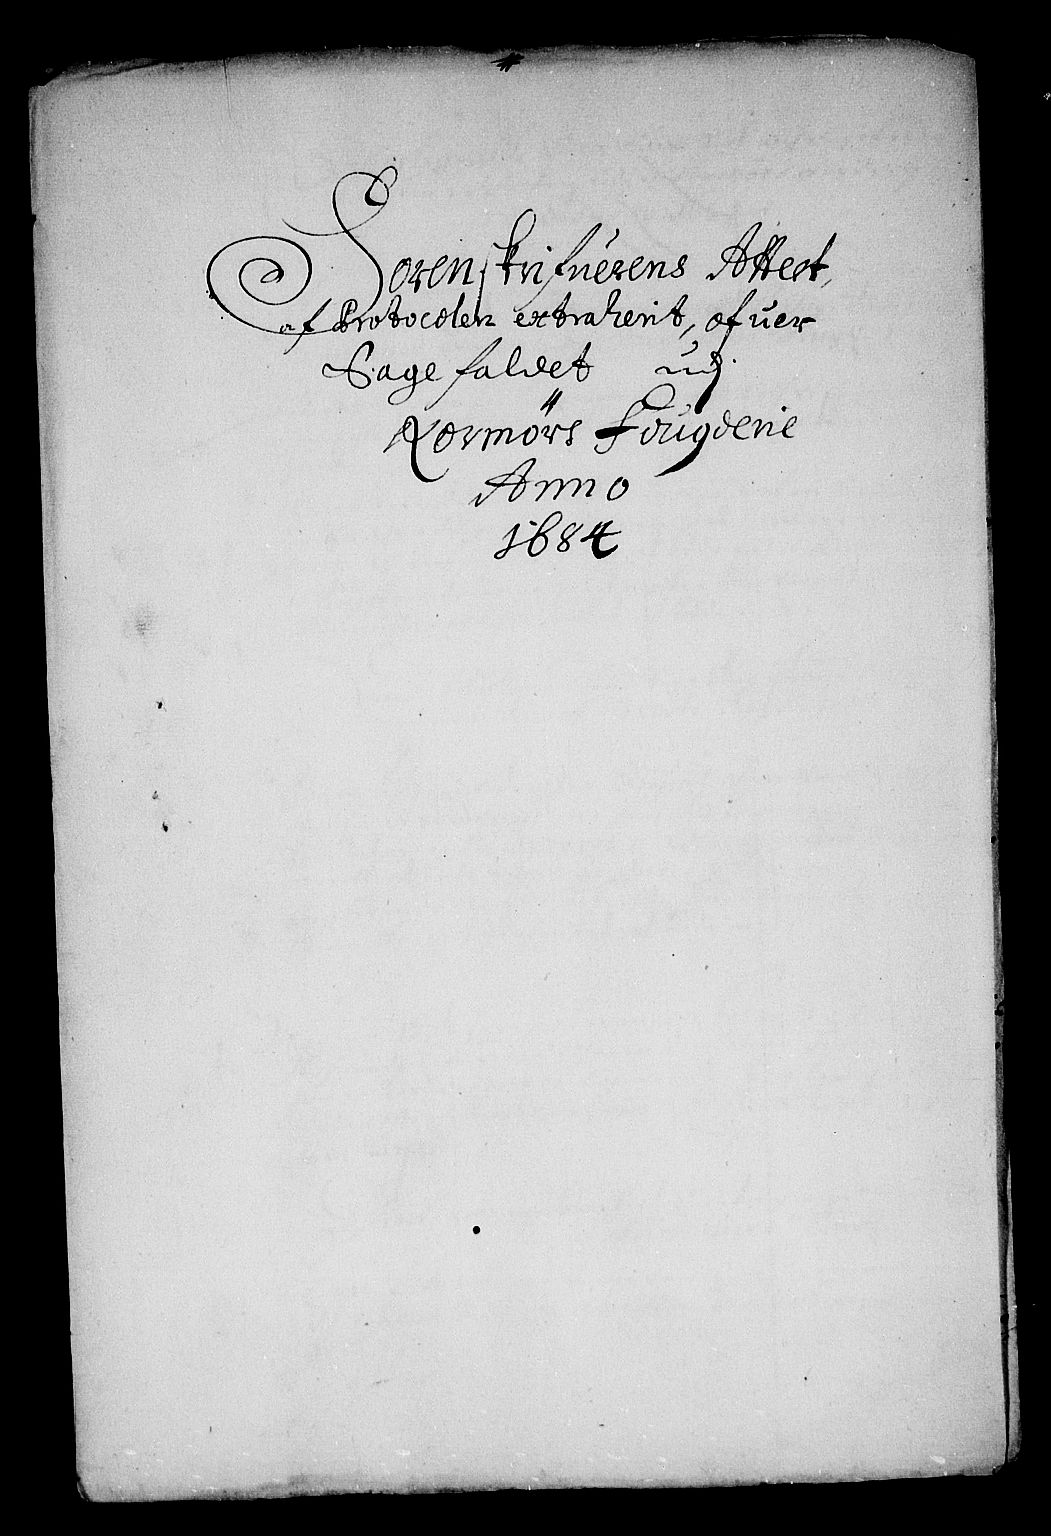 Sorenskrifuerens Attest,
af Protocolen extraherit, ofuer
Sagefaldet udj
Rormørs Fougderie
Anno
1684